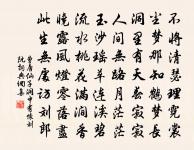 不將清瑟理霓裳
塵夢那知鶴夢長
洞裏有天春寂寂
人間無路月茫茫
玉沙瑤草連溪碧
流水桃花滿澗香
曉露風燈零落盡
此生無處訪劉郎
曹唐仙子洞中有懷劉
阮詞典網集